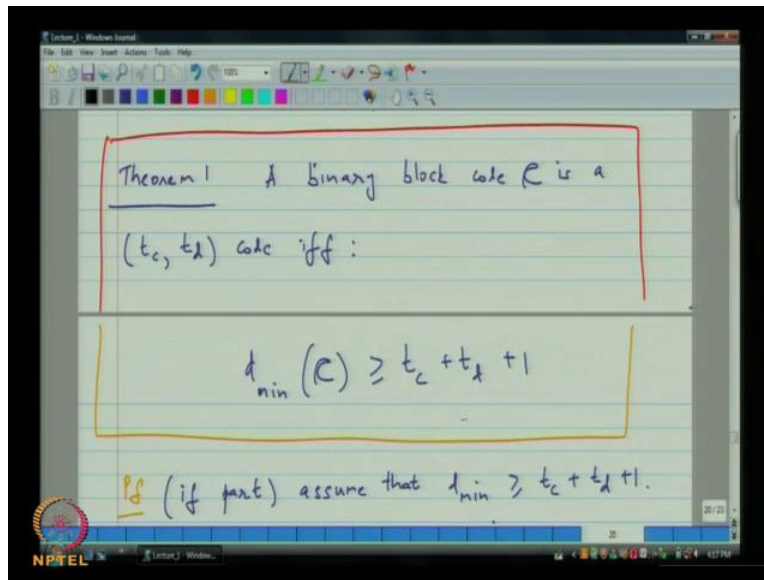 Lecture_1 - Windows Journal
File Edit View Insert Actions Tools Help
100%
B I
Theorem 1 A binary block code C is a
(t_c, t_d) code iff :
d_min (C) ≥ t_c + t_d + 1
Pf (if part) assume that d_min ≥ t_c + t_d + 1.
20/20
20
NPTEL
Lecture_1 - Window...
4:17 PM